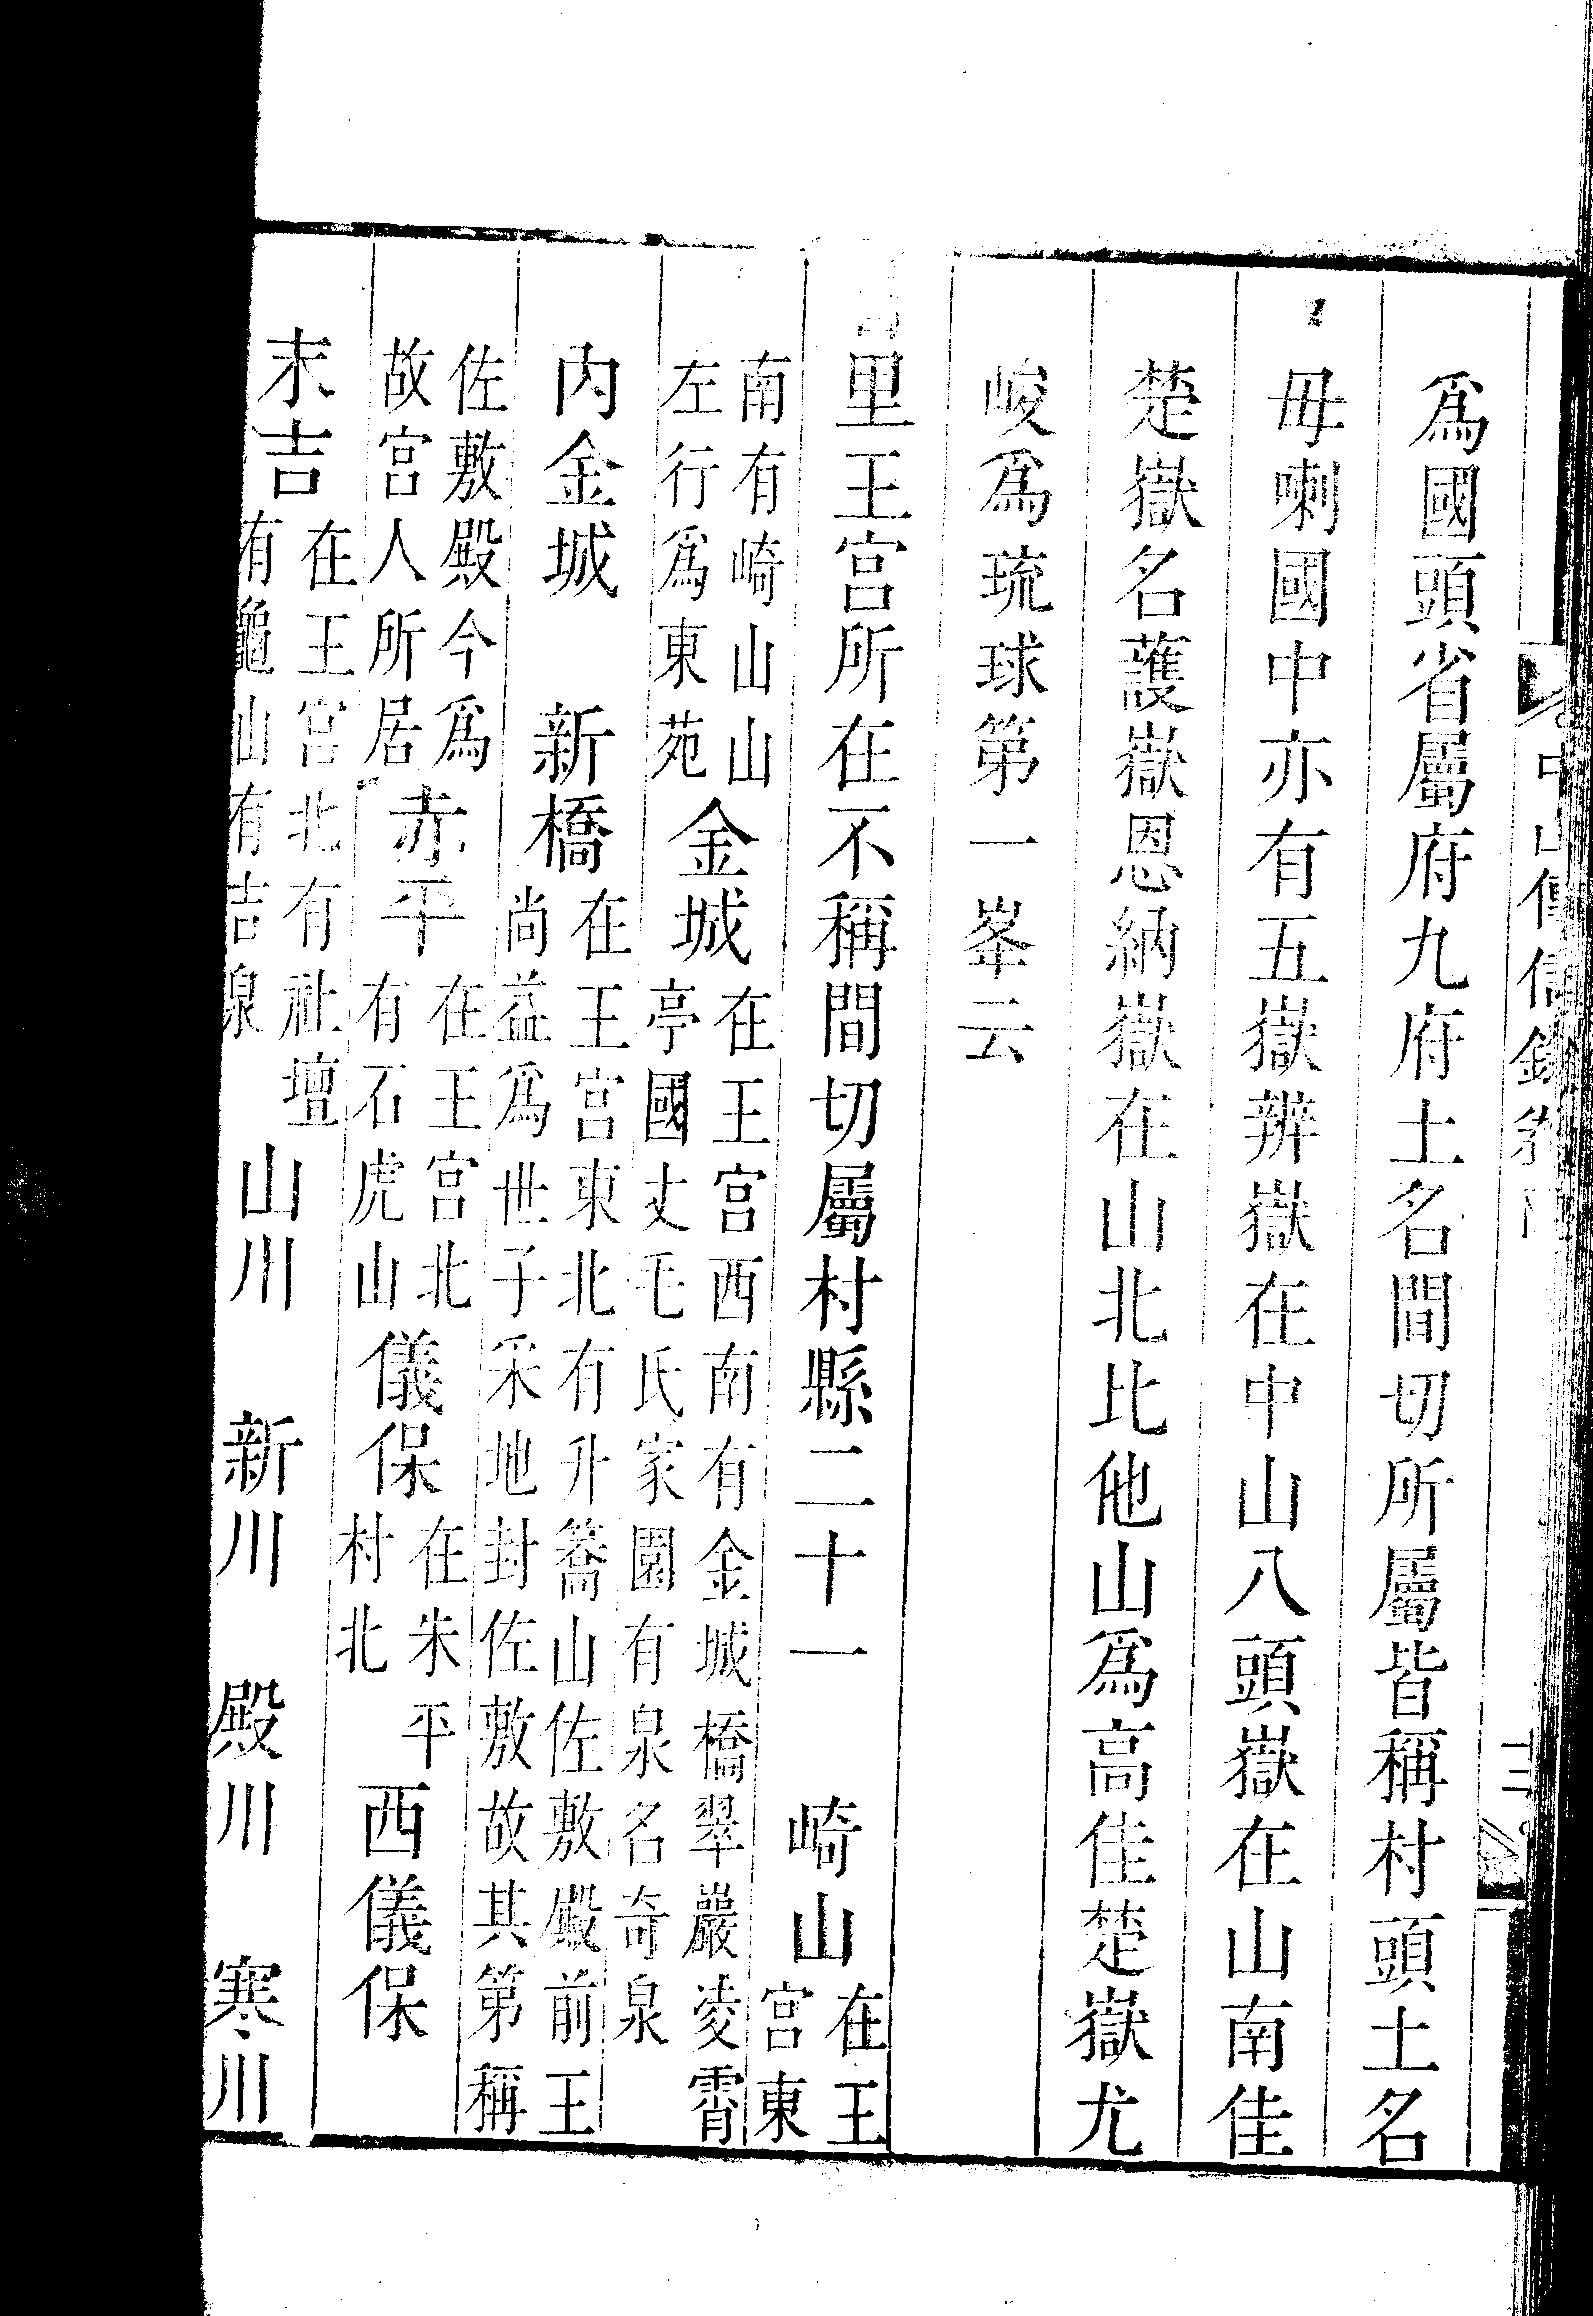 中山傳信錄卷
爲國頭省屬府九府土名間切所屬皆稱村頭土名
毋喇國中亦有五嶽辨嶽在中山八頭嶽在山南佳
楚嶽名護嶽恩納嶽在山北比他山爲高佳楚嶽尤
峻爲琉球第一峯云
里王宮所在不稱間切屬村縣二十一 崎山在王
宮東
南有崎山山
左行爲東苑金城在王宮西南有金城橋翠巖凌霄
亭國丈毛氏家園有泉名奇泉
內金城 新橋在王宮東北有升喬山佐敷殿前王
尚益爲世子采地封佐敷故其第稱
佐敷殿今爲
故宮人所居赤平在王宮北
有石虎山儀保在朱平
村北西儀保
末吉在王宮北有社壇
有龜山有吉泉山川 新川 殿川 寒川